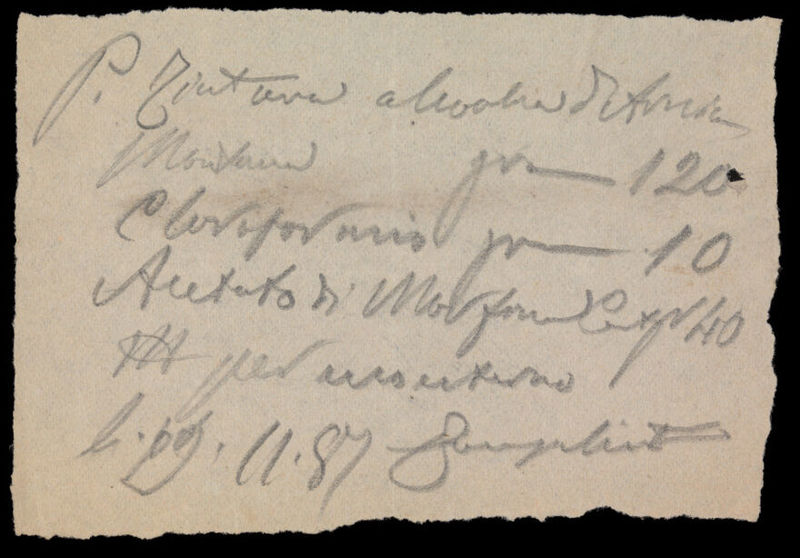 P. Tintura alcoolica d'Arnica
Montana gra 120
Cloroformio gra 10
Acetato di Morfina Centgr 40
M per uso esterno
11. 87